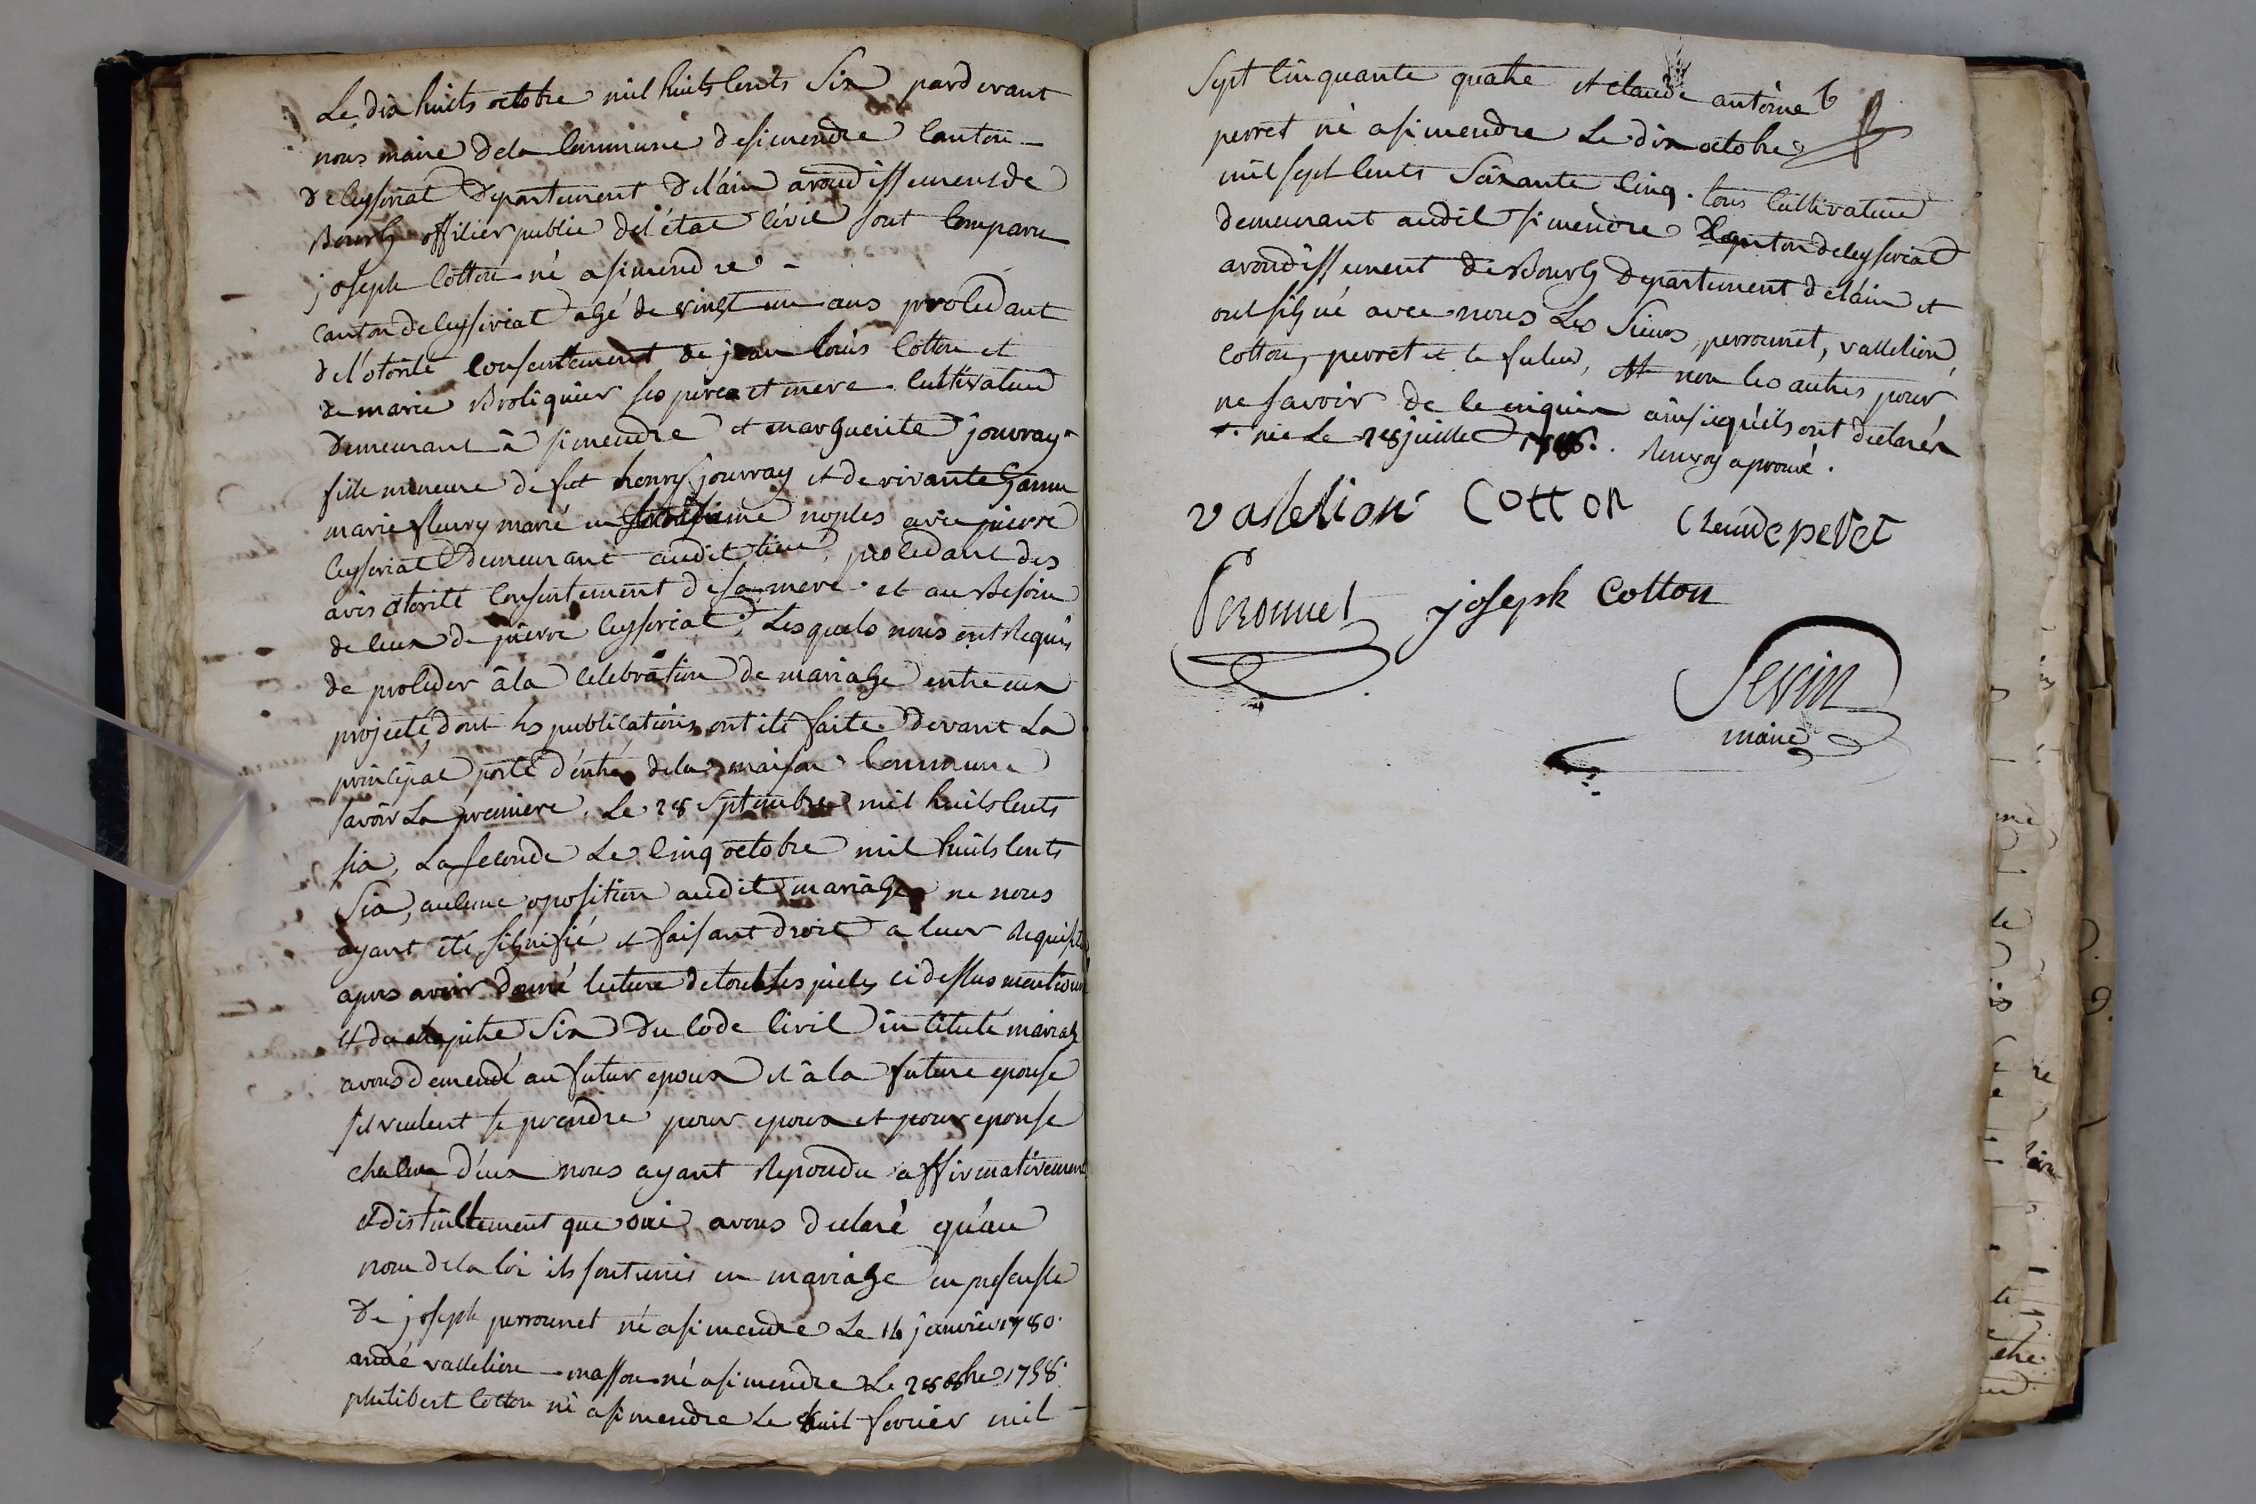 Le dix huits octobre mil huits cents Six pardevant
nous maire dela Commune de simendre Canton
de Ceyseriat Departement del'ain arondissement de
Bourg officier public del'état Civil sont Comparu
joseph Cotton né a simendre
Canton de Ceyseriat agé de vingt un ans procedant
del'otorité Consentement de jean louis Cotton et
de marie Broliquier ses perea et mere Cultivateur
Demeurant à simendre et marguerite jouvray
fille mineure de fut henry jouvray et de vivante
marie fleury marié en noples avec pierre
Ceyseriat Demeurant audit lieu, procedant des
avis otorité Consentement de sa mere et au Besoin
de leux de pierre Ceyseriat, Lesquels nous ont Requis
de proceder àla Celebration de mariage entre eux
projeté dont les publications ont été faite devant La
principal porte d'entré dela maison Commune
savoir La premiere, Le 28 septembre mil huits Cents
six, La seconde Le Cinq octobre mil huits Cents
Six, aucune oposition audit mariage ne nous
ayant été signifié et faisant droit a leur Requist
apres avoir donné lecture de toutes les pieces ci dessus mentionné
et du chapitre Six du Code Civil intitulé mariage
avons demendé au futur epoux et à la future epouse
sil veulent se prendre pour epoux et pour epouse
chacun d'eux nous ayant Repondu affirmativement
et distinctement que oui avons declaré qu'au
nom dela loi ils sont unis en mariage en presense
De joseph perronnet né a simendre Le 16 janvier 1780.
andré vallelion masson né a simendre Le 28 8bre 1758.
philibert Cotton né a simendre Le huit fevrier mil
Sept Cinquante quatre et claude antoine
perret né a simendre Le dix octobre
mil sept Cents Soixante Cinq. tous Cultivateur
demeurant audit simendre Canton de Ceyseriat
arondissement de Bourg Departement del'ain et
ont signé avec nous Les Sieurs, perronnet, vallelion,
Cotton, perret et le futur, et non les autres pour
ne savoir de le enquis ainsi qu'ils ont declarés
née Le 28 juillet Renvoy aprouvé.
vallelion Cotton Claude peret
Peronnet joseph Cotton
Sevin
maire